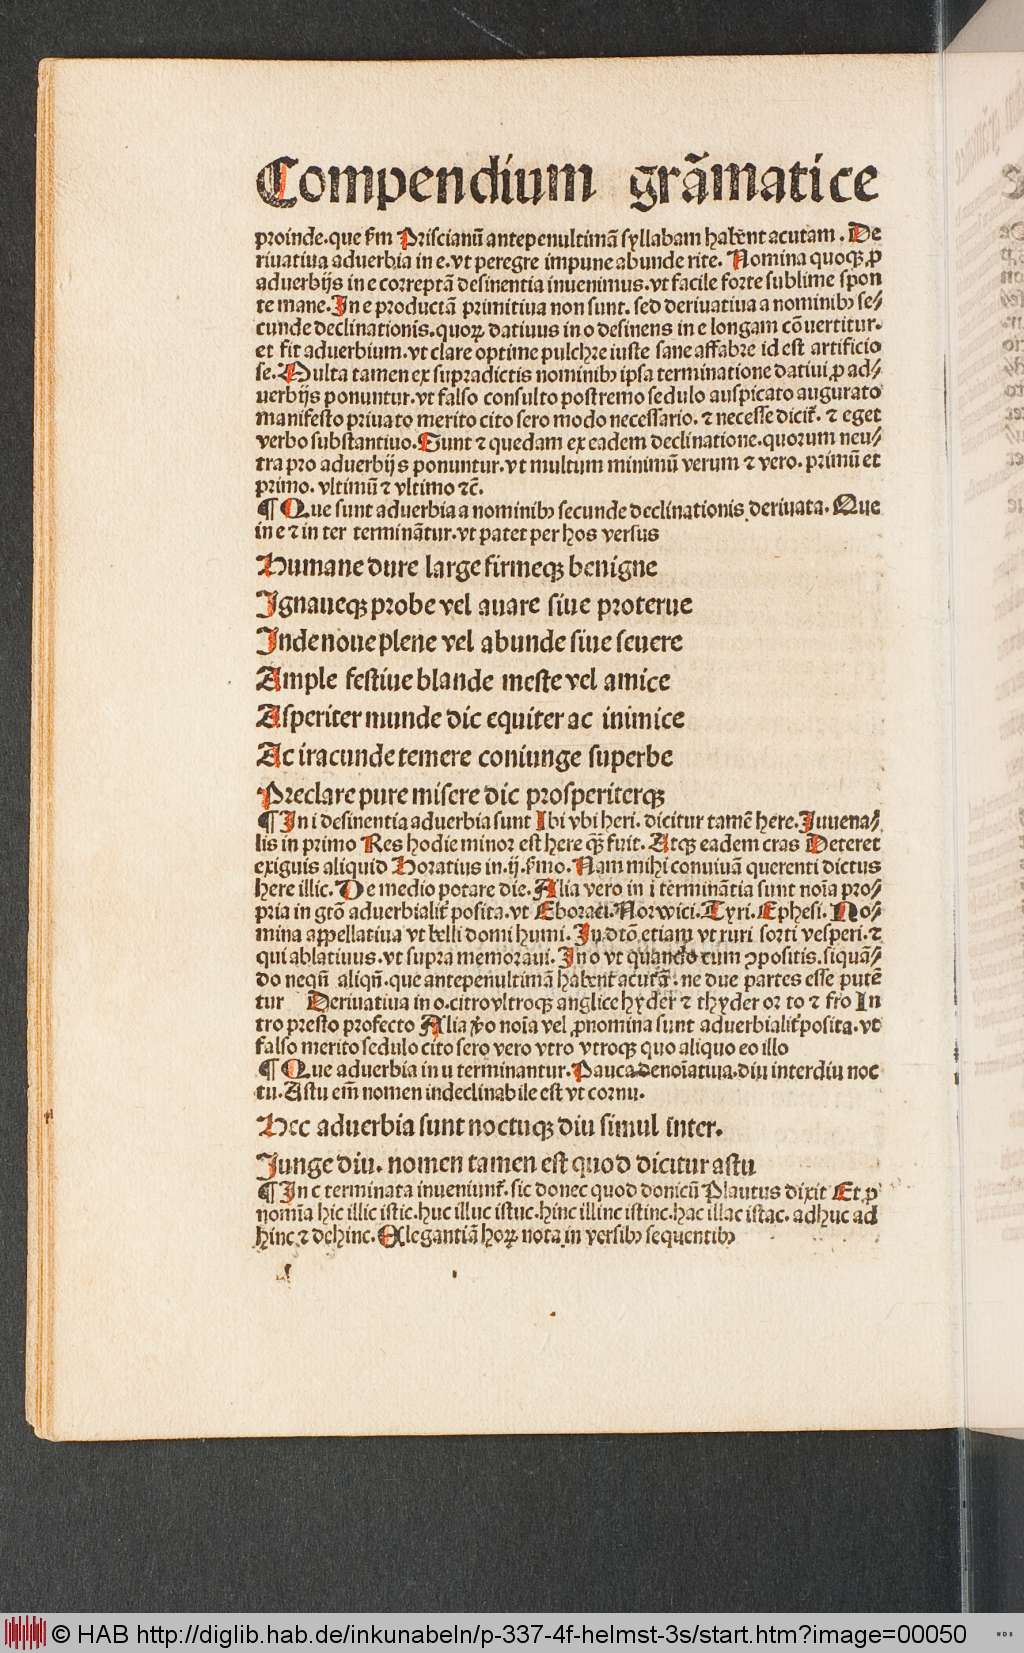 Compendium grāmatice
proinde.que ẜm Priscianū antepenultimā syllabam habēnt acutam. De
riuatiua aduerbia in e.vt peregre impune abunde rite. Nomina quoqꝫ ꝓ
aduerbijs in e correptā desinentia inuenimus.vt facile forte sublime spon
te mane.In e productā primitiua non sunt. sed deriuatiua a nominibꝰ se⸗
cunde declinationis.quoꝝ datiuus in o desinens in e longam cōuertitur.
et fit aduerbium.vt clare optime pulchre iuste sane affabre id est artificio
se.Multa tamen ex supradictis nominibꝰ ipsa terminatione datiui ꝓ ad⸗
uerbijs ponuntur.vt falso consulto postremo sedulo auspicato augurato
manifesto priuato merito cito sero modo necessario. ⁊ necesse dicit᷑. ⁊ eget
verbo substantiuo.Sunt ⁊ quedam ex eadem declinatione.quorum neu⸗
tra pro aduerbijs ponuntur.vt multum minimū verum ⁊ vero. primū et
primo. vltimū ⁊ vltimo ⁊c̄.
¶ Que sunt aduerbia a nominibꝰ secunde declinationis deriuata. Que
in e ⁊ in ter terminātur.vt patet per hos versus
Humane dure large firmeqꝫ benigne
Ignaueqꝫ probe vel auare siue proterue
Inde noue plene vel abunde siue seuere
Ample festiue blande meste vel amice
Asperiter munde dic equiter ac inimice
Ac iracunde temere coniunge superbe
Preclare pure misere dic prosperiterqꝫ
¶ In i desinentia aduerbia sunt Ibi vbi heri. dicitur tamē here.Iuuena⸗
lis in primo Res hodie minor est here qꝫ̄ fuit. Atqꝫ eadem cras Deteret
exiguis aliquid Horatius in.ij.ẜmo. Nam mihi conuiuā querenti dictus
here illic. De medio potare die. Alia vero in i terminātia sunt noīa pro⸗
pria in gtō aduerbialit᷑ posita.vt Eboraci.Norwici.Tyri.Ephesi. No⸗
mina appellatiua vt belli domi humi. In dtō etiam vt ruri sorti vesperi.⁊
qui ablatiuus.vt supra memoraui.In o vt quando cum ꝯpositis.siquā⸗
do neqn̄ aliqn̄.que antepenultimā habent᷑ acutā. ne due partes esse putē
tur Deriuatiua in o.citro vltroqꝫ anglice hyder ⁊ thyder or to ⁊ fro In
tro presto profecto Alia ꝟo noīa vel ꝓnomina sunt aduerbialit᷑ posita.vt
falso merito sedulo cito sero vero vtro vtroqꝫ quo aliquo eo illo
¶ Que aduerbia in u terminantur.Pauca denoīatiua.diu interdiu noc
tu.Astu em̄ nomen indeclinabile est vt cornu.
Hec aduerbia sunt noctuqꝫ diu simul inter.
Iunge diu. nomen tamen est quod dicitur astu
¶ In c terminata inueniunt᷑. sic donec quod donicū Plautus dixit Et ꝓ
nomīa hic illic istic.huc illuc istuc.hinc illinc istinc.hac illac istac. adhuc ad
hinc ⁊ dehinc. Elegantiā hoꝝ nota in versibꝰ sequentibꝰ
© HAB http://diglib.hab.de/inkunabeln/p-337-4f-helmst-3s/start.htm?image=00050